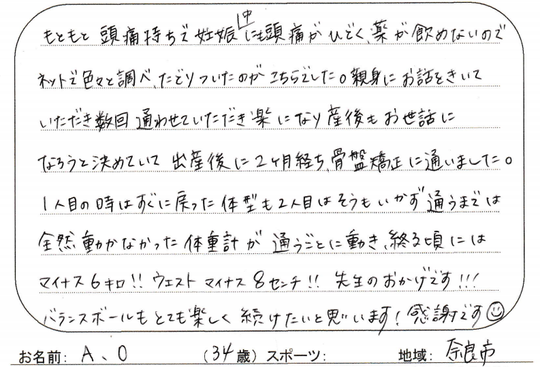 もともと 頭痛持ちで 妊娠中にも頭痛がひどく、薬が飲めないので
ネットで色々と調べ、たどりついたのがこちらでした。親身にお話をきいて
いただき数回 通わせていただき楽になり 産後もお世話に
なろうと決めていて 出産後に2ヶ月経ち、骨盤矯正に通いました。
1人目の時はすぐに戻った体型も2人目はそうもいかず 通うまでは
全然動かなかった体重計が 通うごとに動き、終る頃には
マイナス6キロ!! ウエスト マイナス8センチ!! 先生のおかげです!!!
バランスボールもとても楽しく続けたいと思います!感謝です
お名前: A、O (34歳) スポーツ: 地域: 奈良市